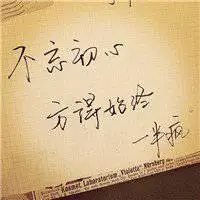 不忘初心
方得始终
一半疯
Kosmet. Laboratorium „Violetta“ Nürnberg